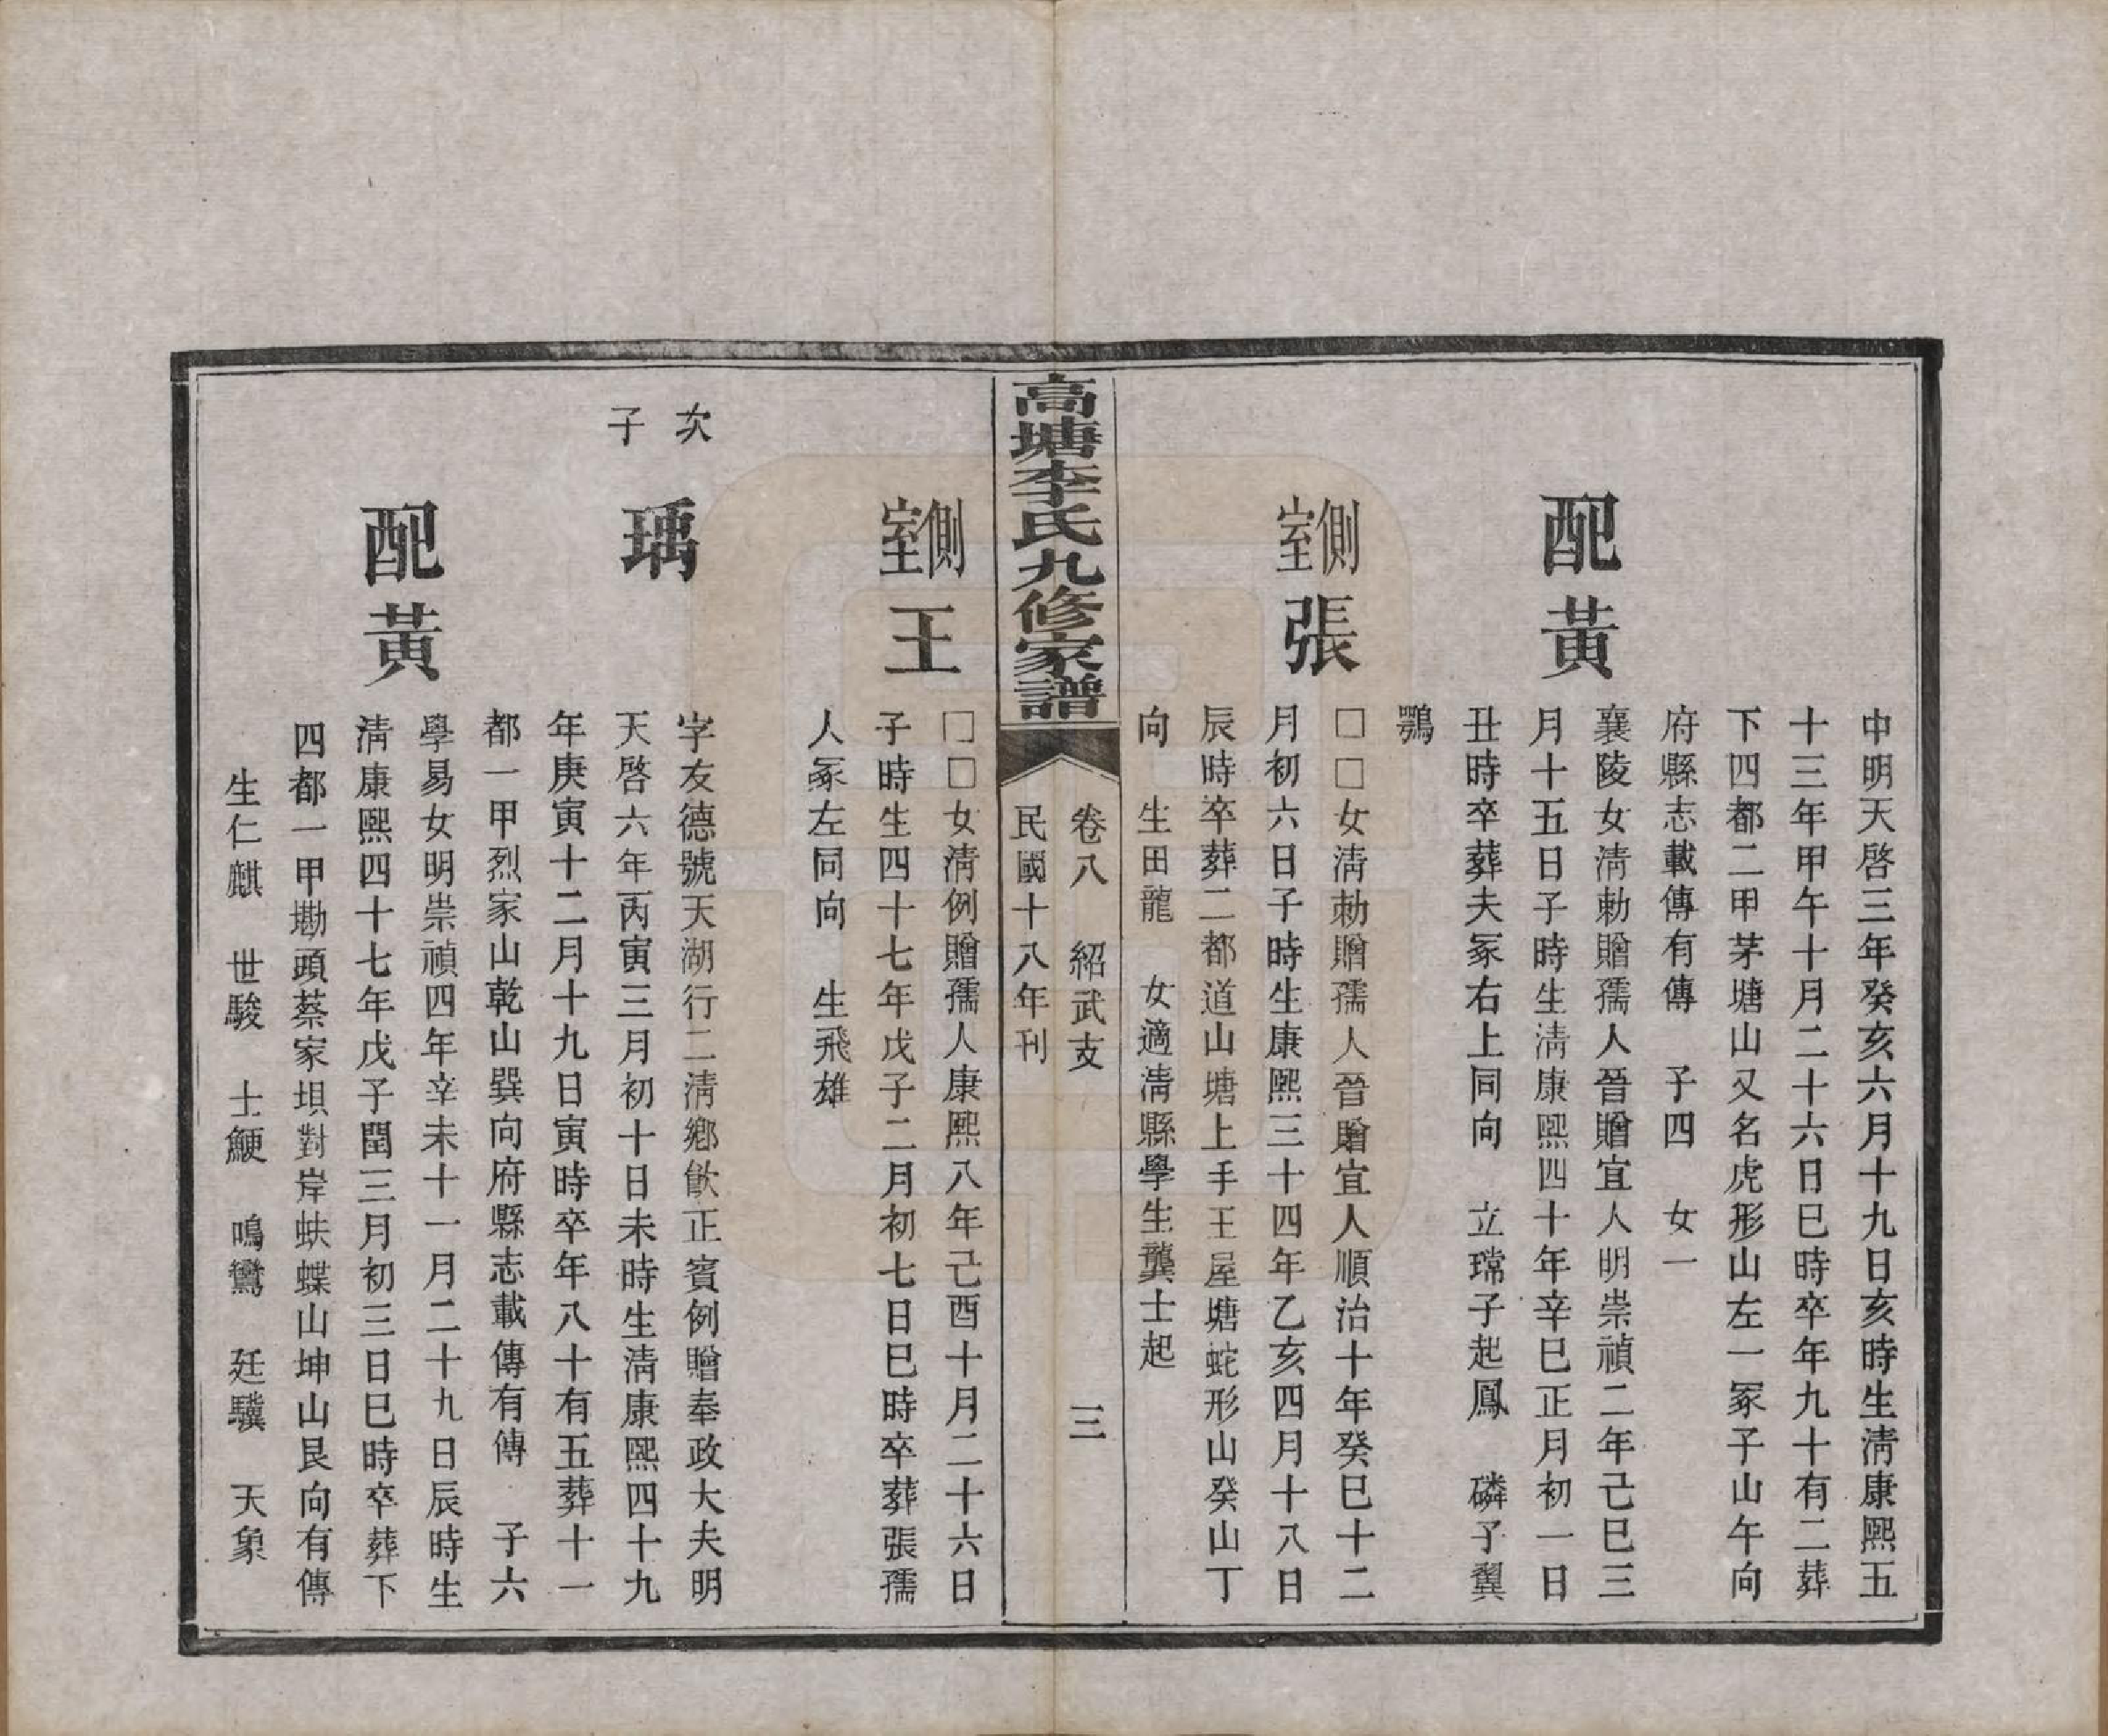 申明天啓三年癸亥六月十九日亥時生清康熙五
十三年甲午十月二十六日巳時卒年九十有二葬
下四都二甲茅塘山又名虎形山左一冢子山午向
府縣志載傳有傳　子四　女一
配黃
襄陵女清勅贈孺人晉贈宜人明崇禎二年己巳三
月十五日子時生清康熙四十年辛巳正月初一日
丑時卒葬夫冢右上同向　立瑺子起鳳　磷子翼
鶚
側室張
□□女清勅贈孺人晉贈宜人順治十年癸巳十二
月初六日子時生康熙三十四年乙亥四月十八日
辰時卒葬二都道山塘上手王屋塘蛇形山癸山丁
向　生田龍　女適清縣學生龔士起
高塘李氏九修家譜
卷八　紹武支　三
民國十八年刊
側室王
□□女清例贈孺人康熙八年己酉十月二十六日
子時生四十七年戊子二月初七日巳時卒葬張孺
人冢左同向　生飛雄
次子
瑀
字友德號天湖行二清鄉飲正賓例贈奉政大夫明
天啓六年丙寅三月初十日未時生清康熙四十九
年庚寅十二月十九日寅時卒年八十有五葬十一
都一甲烈家山乾山巽向府縣志載傳有傳　子六
配黃
學易女明崇禎四年辛未十一月二十九日辰時生
清康熙四十七年戊子閏三月初三日巳時卒葬下
四都一甲墈頭蔡家垻對岸蚨蝶山坤山艮向有傳
生仁麒　世駿　士鯁　鳴鸞　廷驥　天象